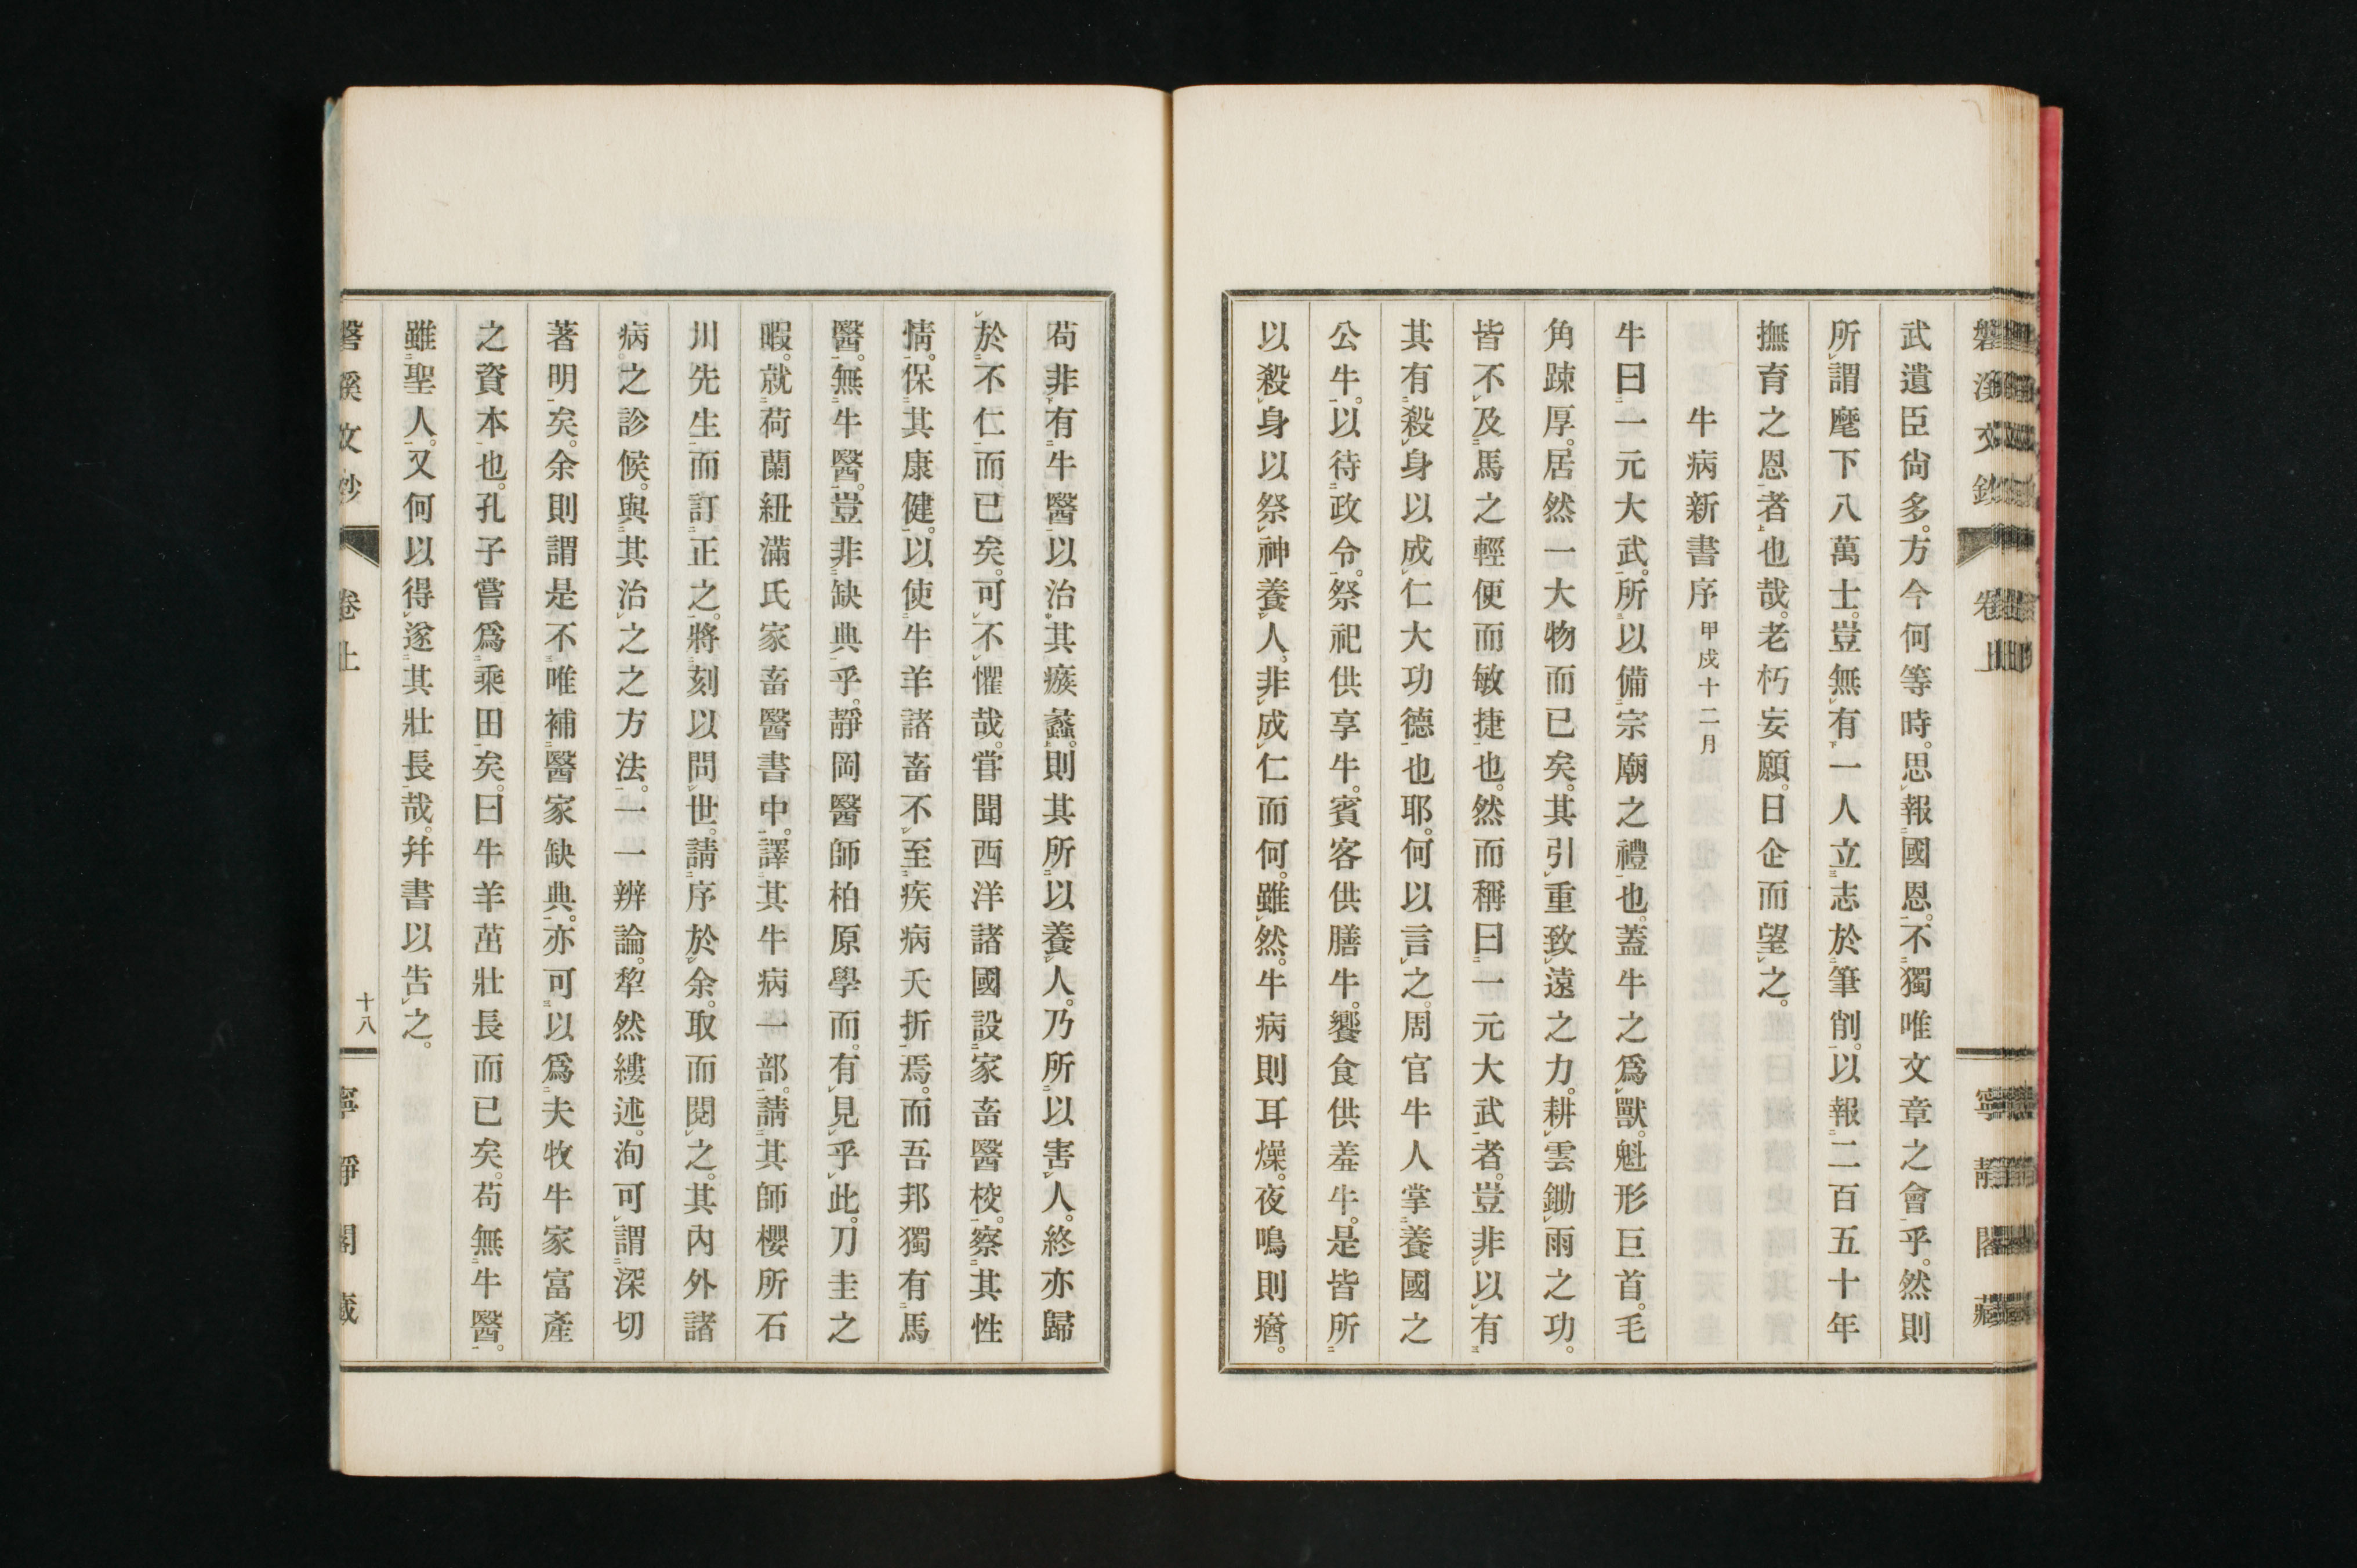 武遺臣尙多。方今何等時。思報國恩。不獨唯文章之會乎。然則
所謂麾下八萬士。豈無有一人立志於筆削。以報二百五十年
撫育之恩者也哉。老朽妄願。日企而望之。
牛病新書序 甲戌十二月
牛曰一元大武。所以備宗廟之禮也。蓋牛之爲獸。魁形巨首。毛
角踈厚。居然一大物而已矣。其引重致遠之力。耕雲鋤雨之功。
皆不及馬之輕便而敏捷也。然而稱曰一元大武者。豈非以有
其有殺身以成仁大功德也耶。何以言之。周官牛人掌養國之
公牛。以待政令。祭祀供享牛。賓客供膳牛。饗食供羞牛。是皆所
以殺身以祭神養人。非成仁而何。雖然。牛病則耳燥。夜鳴則瘠。
苟非有牛醫以治其瘯蠡。則其所以養人。乃所以害人。終亦歸
於不仁而已矣。可不懼哉。甞聞西洋諸國設家畜醫校。察其性
情。保其康健。以使牛羊諸畜不至疾病夭折焉。而吾邦獨有馬
醫。無牛醫。豈非缺典乎。靜岡醫師柏原學而。有見乎此。刀圭之
暇。就荷蘭紐滿氏家畜醫書中。譯其牛病一部。請其師櫻所石
川先生而訂正之。將刻以問世。請序於余。取而閱之。其內外諸
病之診候。與其治之之方法。一一辨論。犂然縷述。洵可謂深切
著明矣。余則謂是不唯補醫家缺典。亦可以爲夫牧牛家富產
之資本也。孔子嘗爲乘田矣。曰牛羊茁壯長而已矣。苟無牛醫。
雖聖人。又何以得遂其壯長哉。幷書以吿之。
磐溪文鈔 卷上 十八 寧靜閣藏